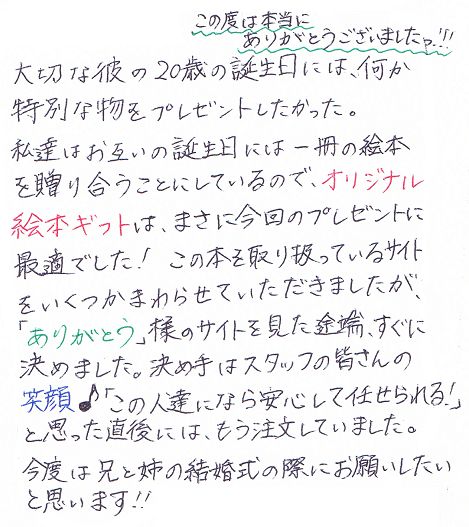 この度は本当に
ありがとうございましたッ!!!
大切な彼の20歳の誕生日には、何か
特別な物をプレゼントしたかった。
私達はお互いの誕生日には一冊の絵本
を贈り合うことにしているので、オリジナル
絵本ギフトは、まさに今回のプレゼントに
最適でした! この本を取り扱っているサイト
をいくつかまわらせていただきましたが、
「ありがとう」様のサイトを見た途端、すぐに
決めました。決め手はスタッフの皆さんの
笑顔♪「この人達になら安心して任せられる!」
と思った直後には、もう注文していました。
今度は兄と姉の結婚式の際にお願いしたい
と思います!!